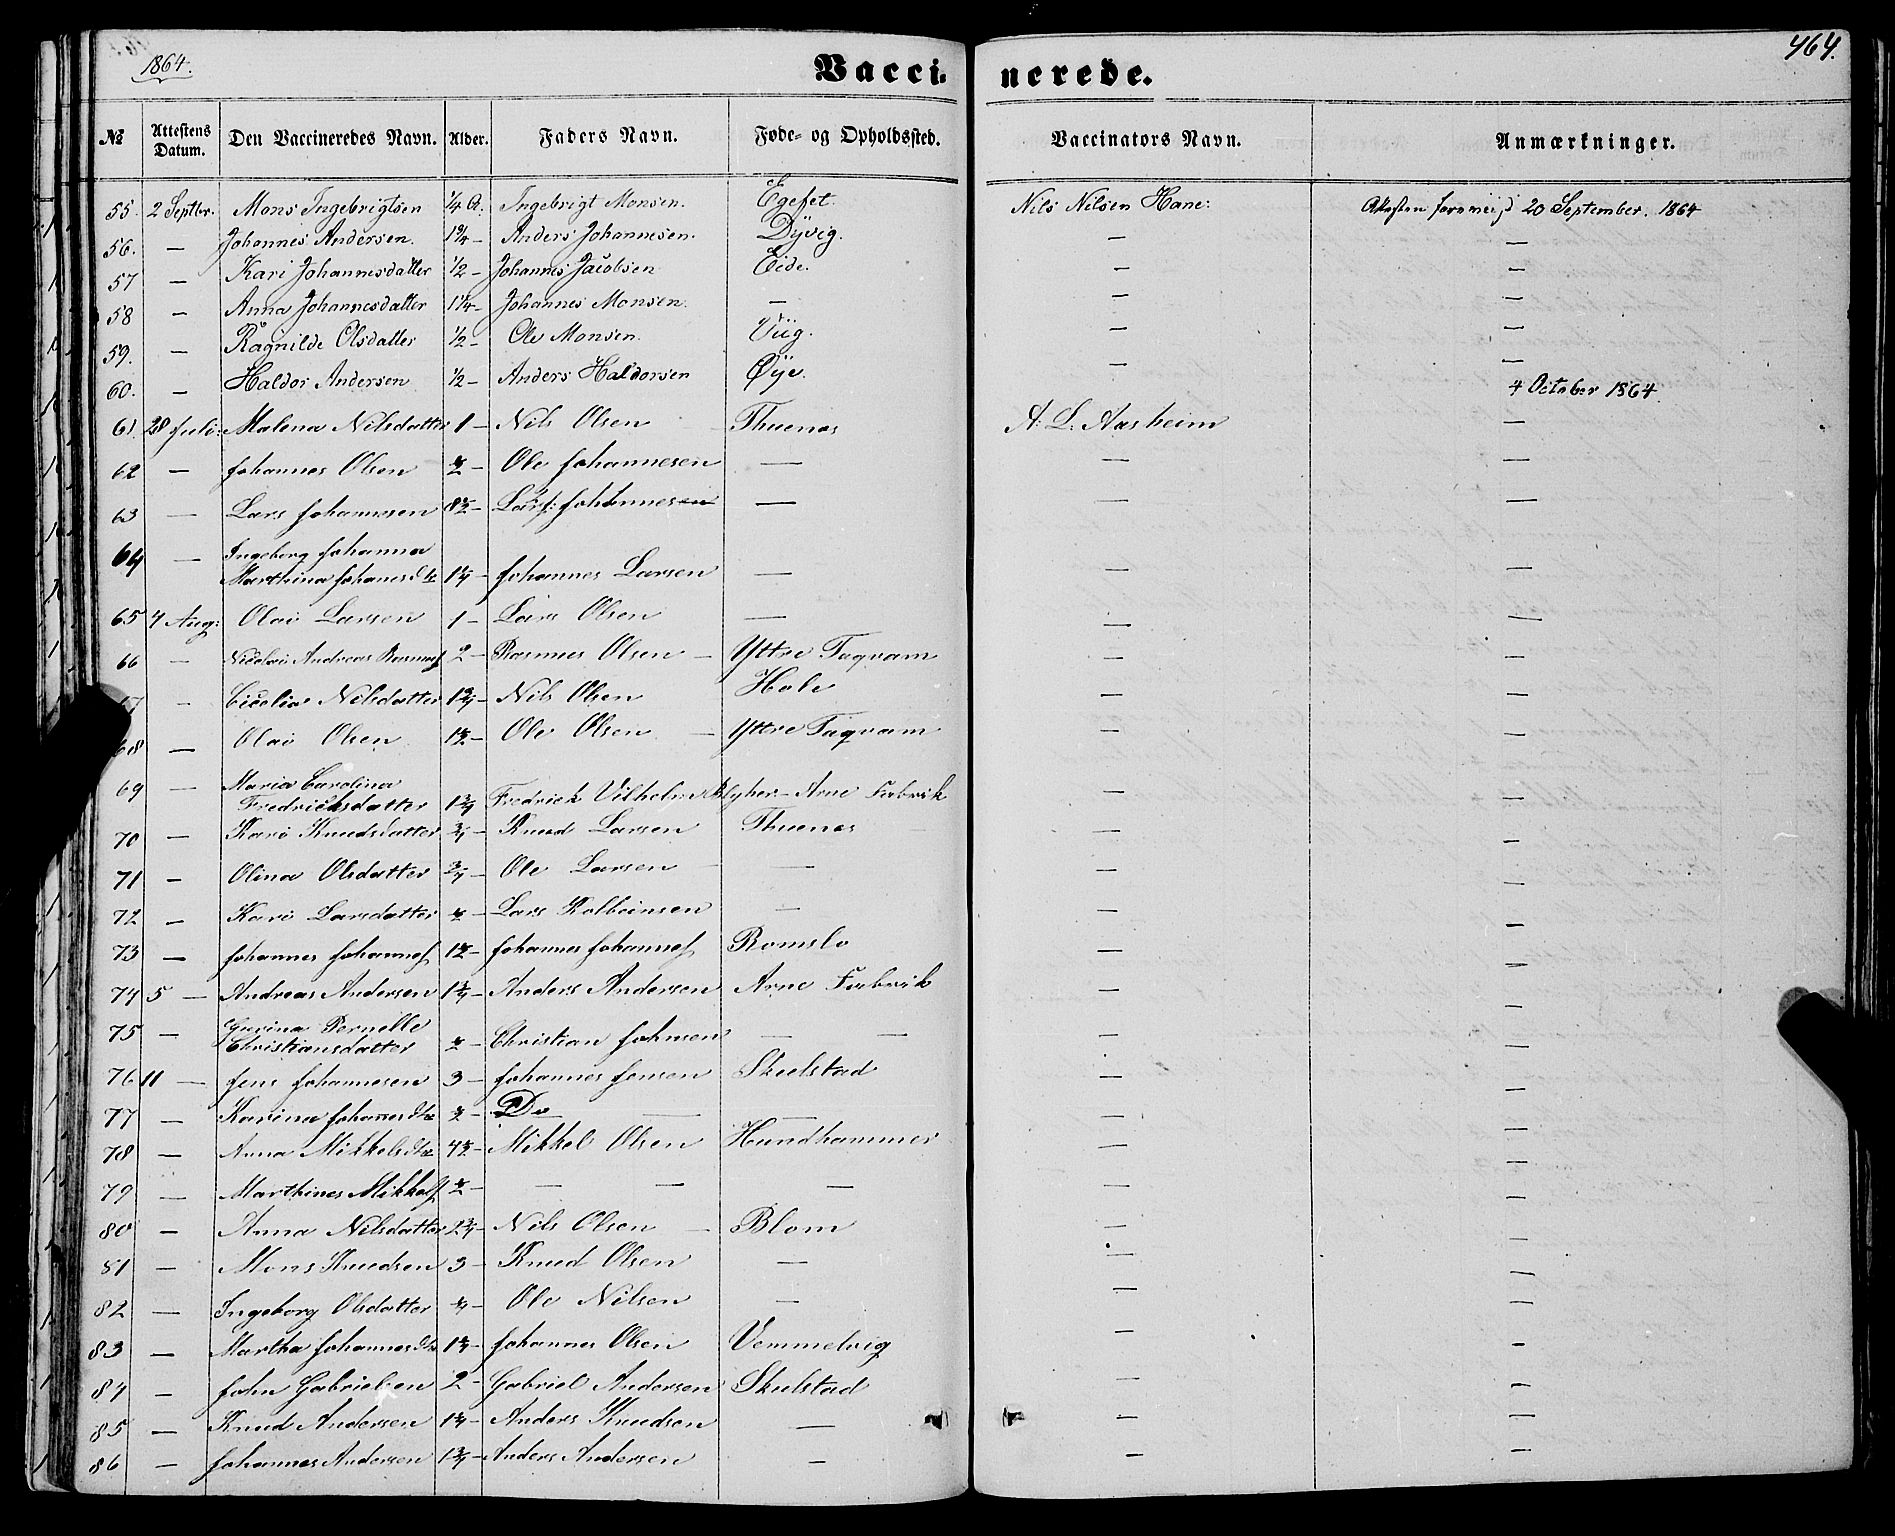 1864.
464.
Vaccinerede.
№ Attestens Datum. Den Vaccineredes Navn. Alder. Faders Navn. Føde- og Opholdssted. Vaccinators Navn. Anmærkninger.
55. 2 Septbr. Mons Ingebrigtsen 1/4 A. Ingebrigt Monsen. Egeset. Nils Nilsen Hane: 20 September. 1864
56. — Johannes Andersen. Anders Johannesen. Dyvig. — —
57 — Kari Johannesdatter 1/2 – Johannes Jacobsen Eide. — —
58 — Anna Johannesdatter 1 1/4 – Johannes Monsen. — — —
59. — Ragnilde Olsdatter 1/2 – Ole Monsen. Viig. — —
60. — Haldor Andersen 1/2 – Anders Haldorsen Øye. — — 4 October 1864.
61. 28 Juli: Malena Nilsdatter 1 – Nils Olsen – Thuenes A: L: Aasheim —
62 — Johannes Olsen 1/2 – Ole Johannesen — — —
63 — Lars Johannesen 8 1/2 – Lars Johannesen — — —
64 — Ingeborg Johanna
Marthina Johanesdtr – Johannes Larsen — — —
65 4 Aug: Olai Larsen 1 – Lars Olsen — — —
66 — Nicolai Andreas Rasmus 2 – Rasmus Olsen – Yttre Taqvam — —
– Nilsdatter – Nils Olsen Hole — —
68 — Olai Olsen 1 1/2 – Ole Olsen – Yttre Taqvam — —
69 — Maria Carolina
Fredricksdatter 1 3/4 Fredrick Vilhelm Arne Fabrik — —
70 — Kari Knudsdatter 3/4 – Knud Larsen Thuenes — —
71 — Olina Olsdatter 3/4 – Ole Larsen — — —
72 — Kari Larsdatter 1/2 – Lars Kolbeinsen — — —
73 — Johannes Johannes 1 1/2 – Johannes Johannes Romslo — —
74 5 — Andreas Andersen 1 3/4 – Anders Andersen Arne Fabrik — —
75 — Pernelle
Christiansdatter 1/2 – Christian Johnsen — — — —
76 11 — Jens Johannesen 3 – Johannes Jensen Skulstad — —
77 — Karina Johannesdtr 1/2 – Do — — — —
78 — Anna Mikkelsdtr 4 1/2 – Mikkel Olsen Hundhammer — —
79 — Marthines Mikkels 1/2 – — — — — —
80 — Anna Nilsdatter 2 3/4 – Nils Olsen – Blom — —
81 — Mons Knudsen 3 – Knud Olsen — — —
82 — Ingeborg Olsdatter 1/4 – Ole Nilsen — — —
83 — Martha Johannesdtr 1 1/4 – Johannes Olsen Vemmelvig — —
84 — John Gabrielsen 2 – Gabriel Andersen Skulstad — —
85 — Knud Andersen 1 1/4 – Anders Knudsen — — —
86 — Johannes Andersen 1 3/4 – Anders Andersen — — —